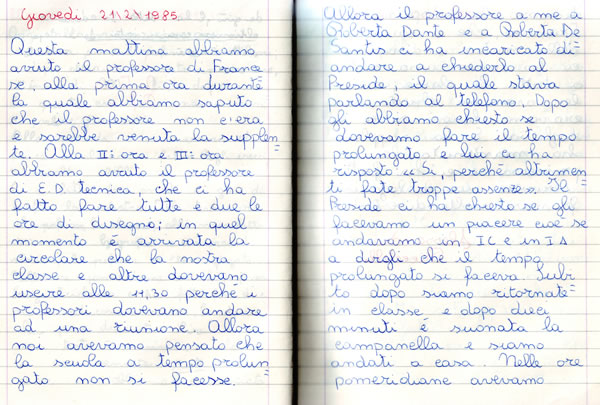 Giovedì 21\2\1985
Questa mattina abbiamo
avuto il professore di France=
se, alla prima ora durante
la quale abbiamo saputo
che il professore non c'era
e sarebbe venuta la supplen=
te. Alla II: ora e III: ora
abbiamo avuto il professore
di E.D. tecnica, che ci ha
fatto fare tutte e due le
ore di disegno; in quel
momento è arrivata la
circolare che la nostra
classe e altre dovevano
uscire alle 11,30 perché i
professori dovevano andare
ad una riunione. Allora
noi avevamo pensato che
la scuola a tempo prolun=
gato non si facesse.
Allora il professore a me a
Roberta Dante e a Roberta De
Santis ci ha incaricato di
andare a chiederlo al
Preside, il quale stava
parlando al telefono. Dopo
gli abbiamo chiesto se
dovevamo fare il tempo
prolungato e lui ci ha
risposto «Si, perché altrimen=
ti fate troppe assenze». Il
Preside ci ha chiesto se gli
facevamo un piacere cioè se
andavamo in I C e in I A
a dirgli che il tempo
prolungato si faceva. Subi=
to dopo siamo ritornate
in classe e dopo dieci
minuti è suonata la
campanella e siamo
andati a casa. Nelle ore
pomeridiane avevamo